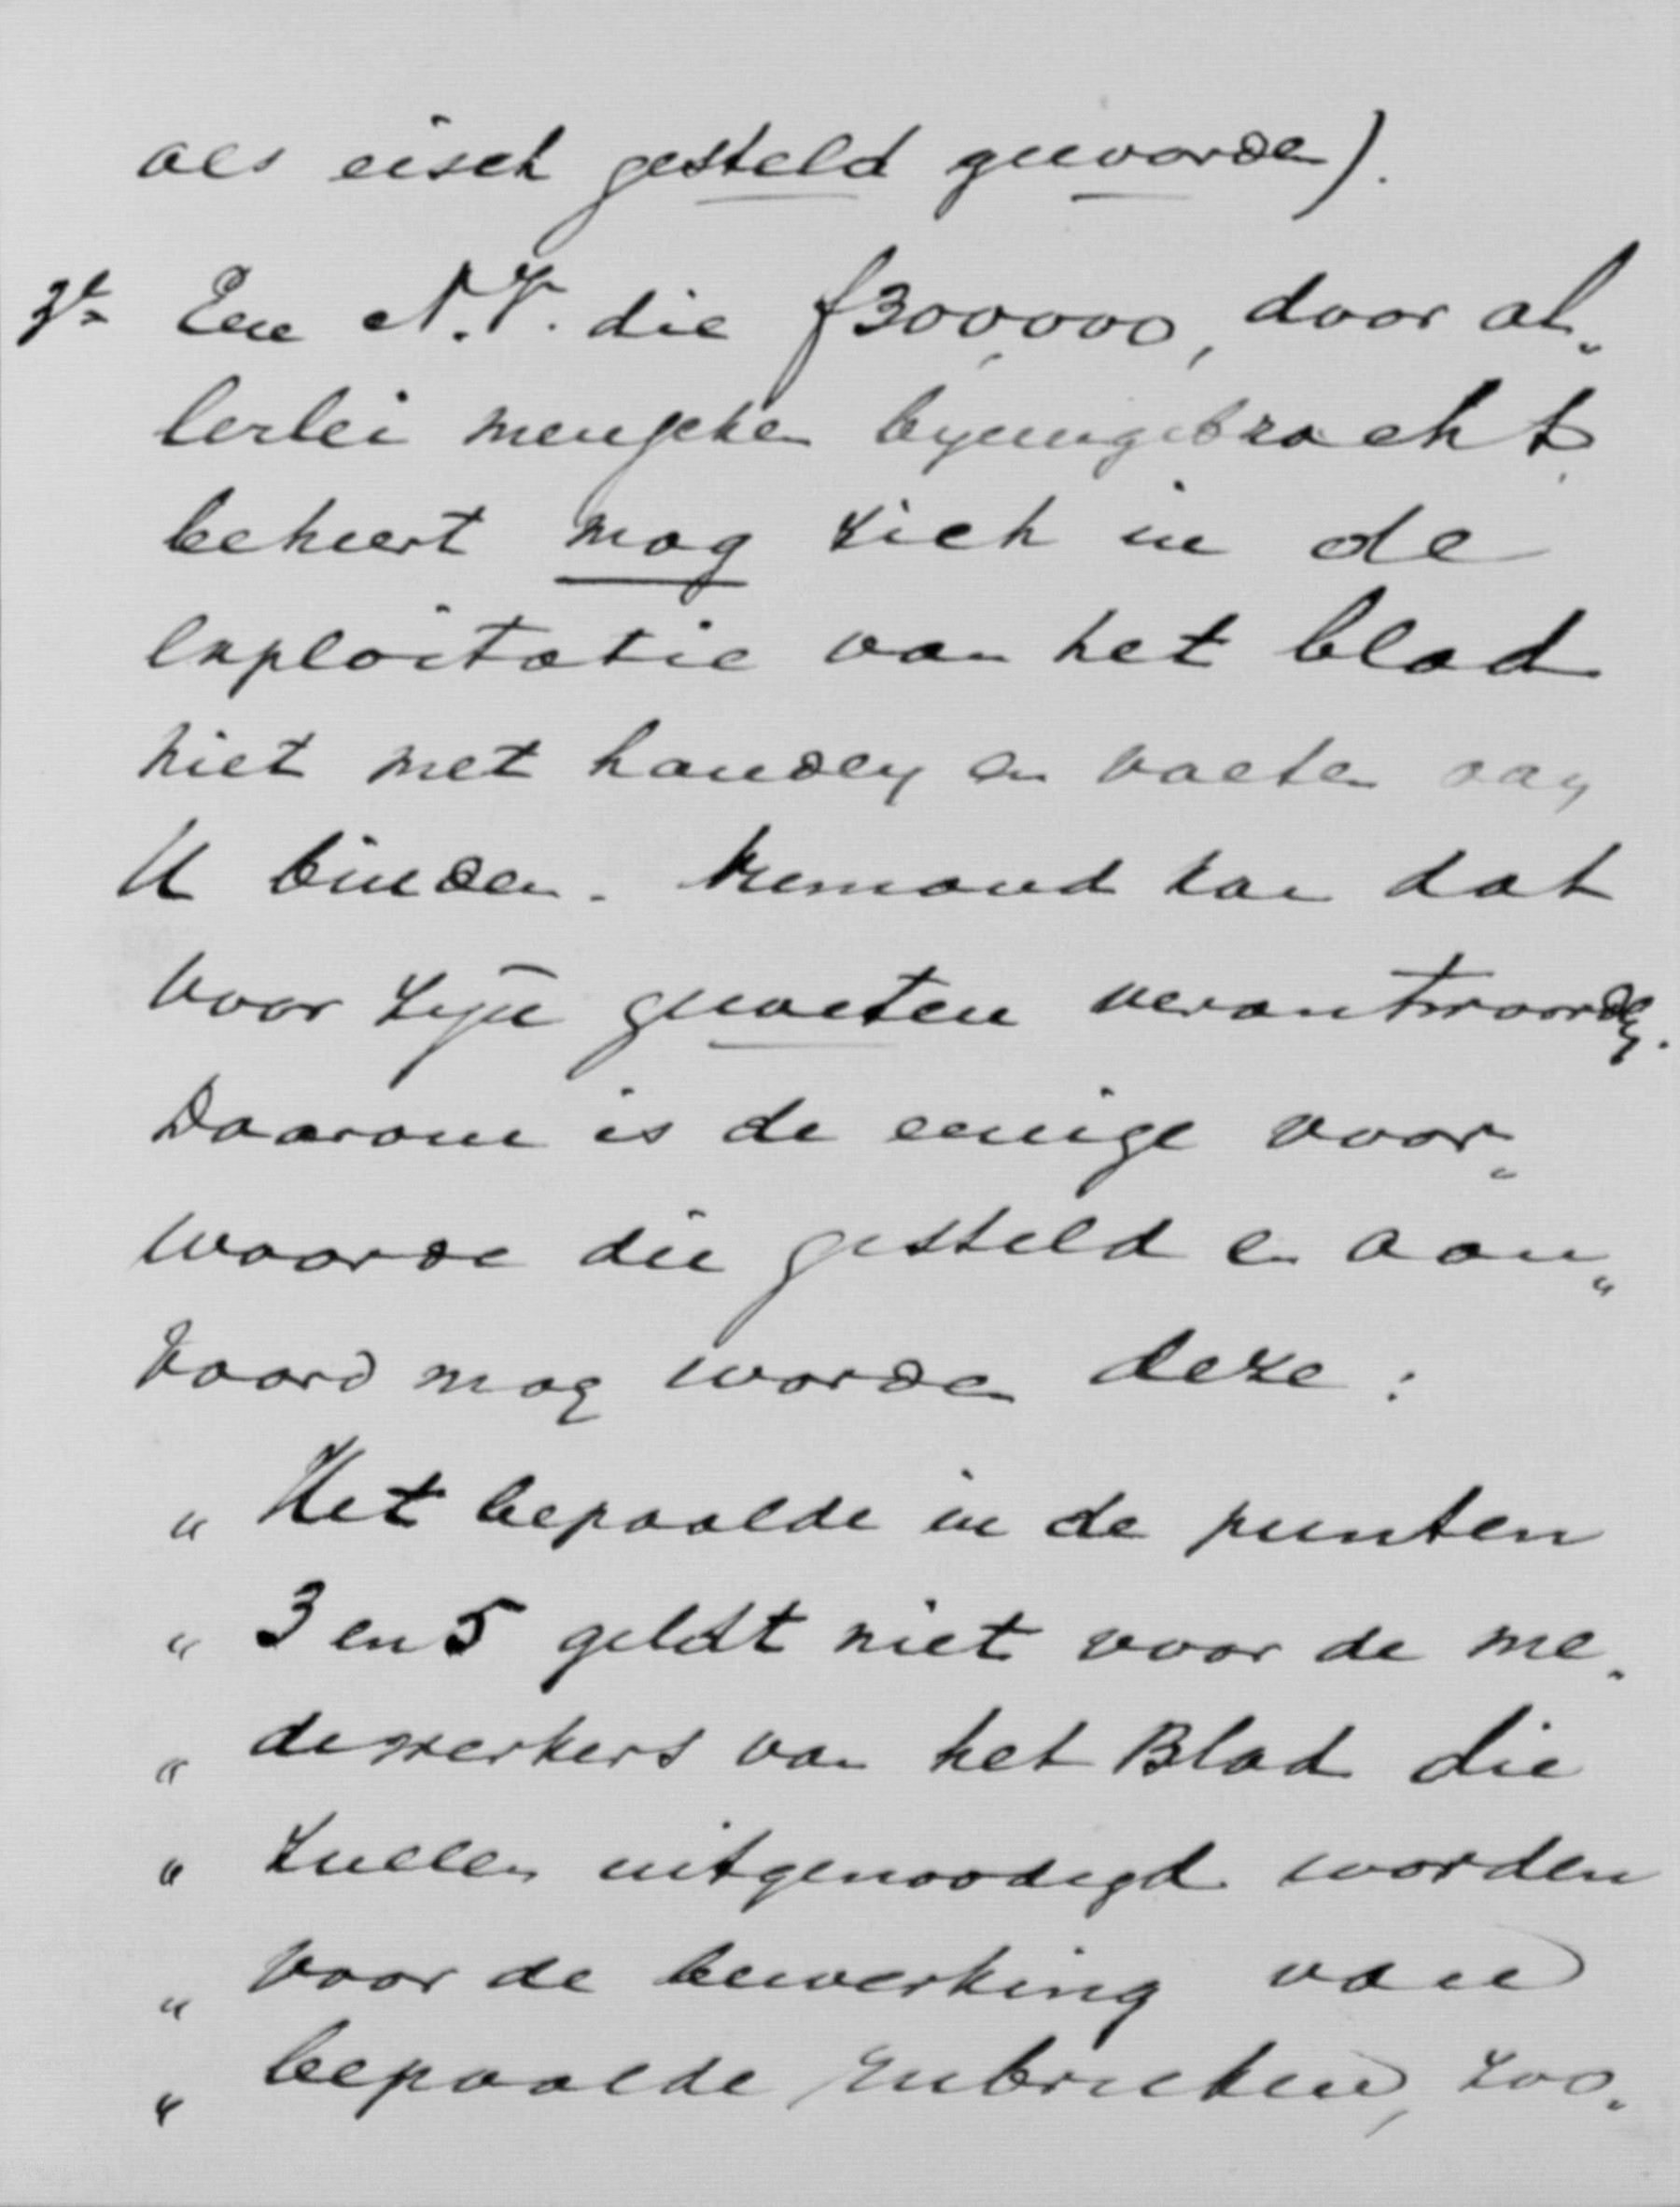 als eisch gesteld geworden).
3e Een N.V. die f300,000, door al„
lerlei menschen byeengebracht,
beheert mag zich in de
exploitatie van het blad
niet met handen en voeten aan
U binden. Niemand kan dat
voor zyn geweten verantwoorden.
Daarom is de eenige voor„
waarde die gesteld en aan„
vaard mag worden deze:
„ Het bepaalde in de punten
„ 3 en 5 geldt niet voor de me„
„ dewerkers van het Blad die
„ zullen uitgenoodigd worden
„ voor de bewerking van
„ bepaalde rubrieken, zoo„